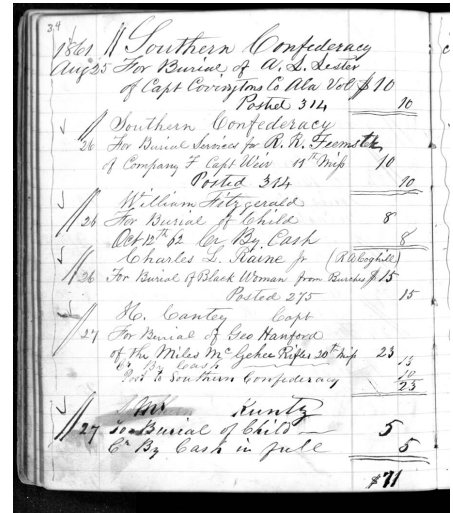 34
1861 // Southern Confederacy
Aug 25 For Burial of A. L. Lester
of Capt Covingtons Co Ala Vol $ 10
Posted 314 10
// Southern Confederacy
26 For Burial Services for R. R. Feemster
of Company F Capt Weir 11th Miss 10
Posted 314 10
// William Fitzgerald
26 For Burial of Child 8
Oct 12th 62 Cr By Cash 8
// Charles L. Raine Jr (R A Coghill)
26 For Burial of Black Woman from Burches $ 15
Posted 275 15
// H. Cantey Capt
27 For Burial of Geo Hanford
of the Miles McGehee Rifles 20th Miss 23
Cr By Cash 13
Post to Southern Confederacy 10
23
Kuntz
// 27 To Burial of Child 5
Cr By Cash in full 5
$ 71